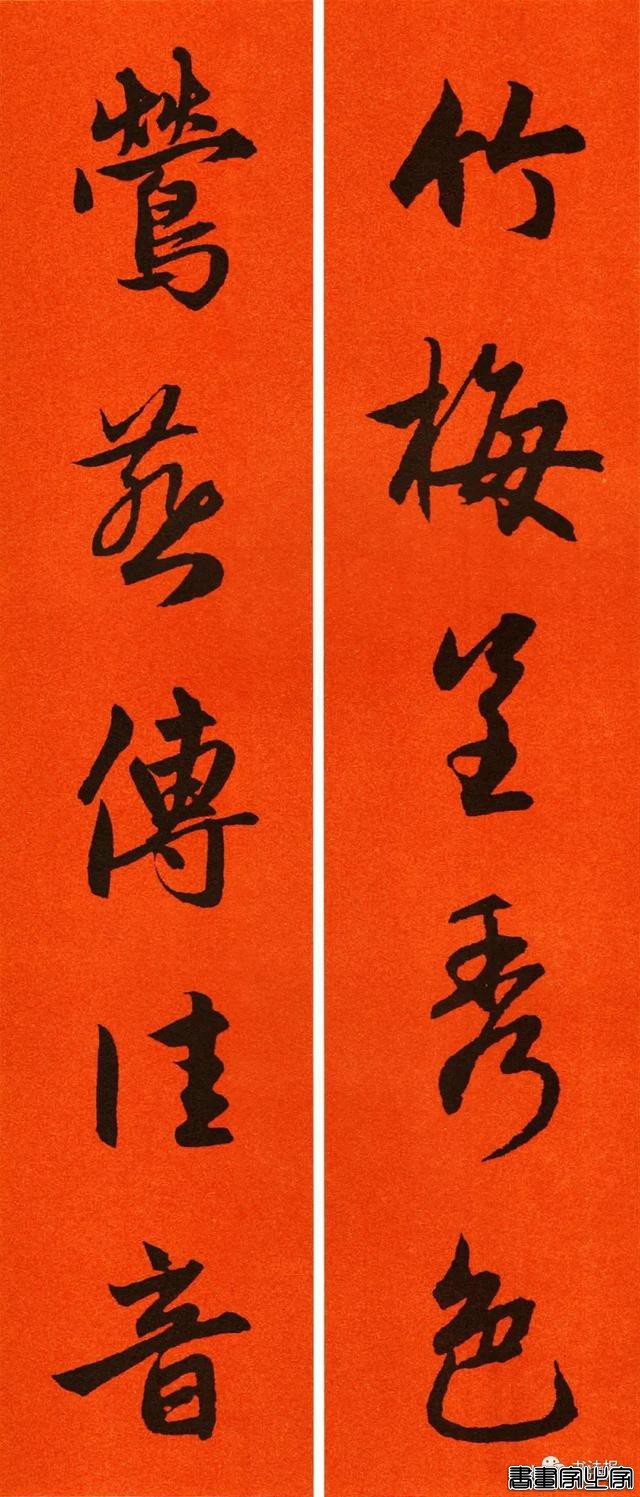 竹梅呈秀色
鶯燕傳佳音
書法报
書畫家之家